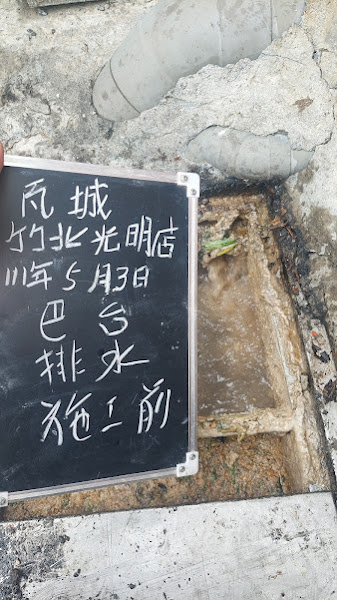 瓦城
竹北光明店
111年5月3日
巴台
排水
施工前